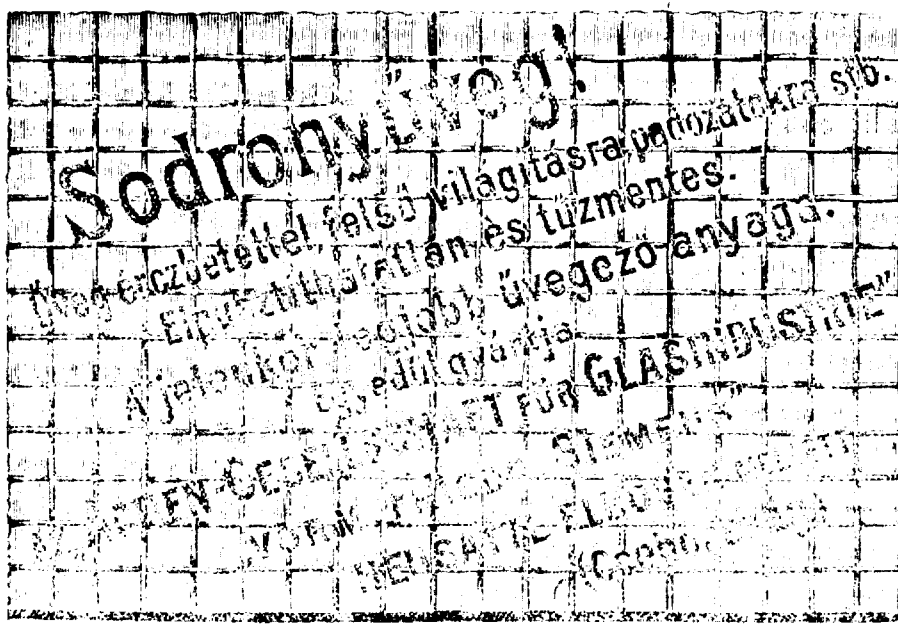 Sodronyüveg!
Üveg érczbetéttel, felső világításra, padozatokra stb.
Elpusztíthatatlan és tűzmentes.
A jelenkor legjobb üvegező anyaga.
Egyedül gyártja
ACTIEN-GESELLSCHAFT FÜR GLASINDUSTRIE"
VORM. FRIEDR. SIEMENS"
NEUSATTL